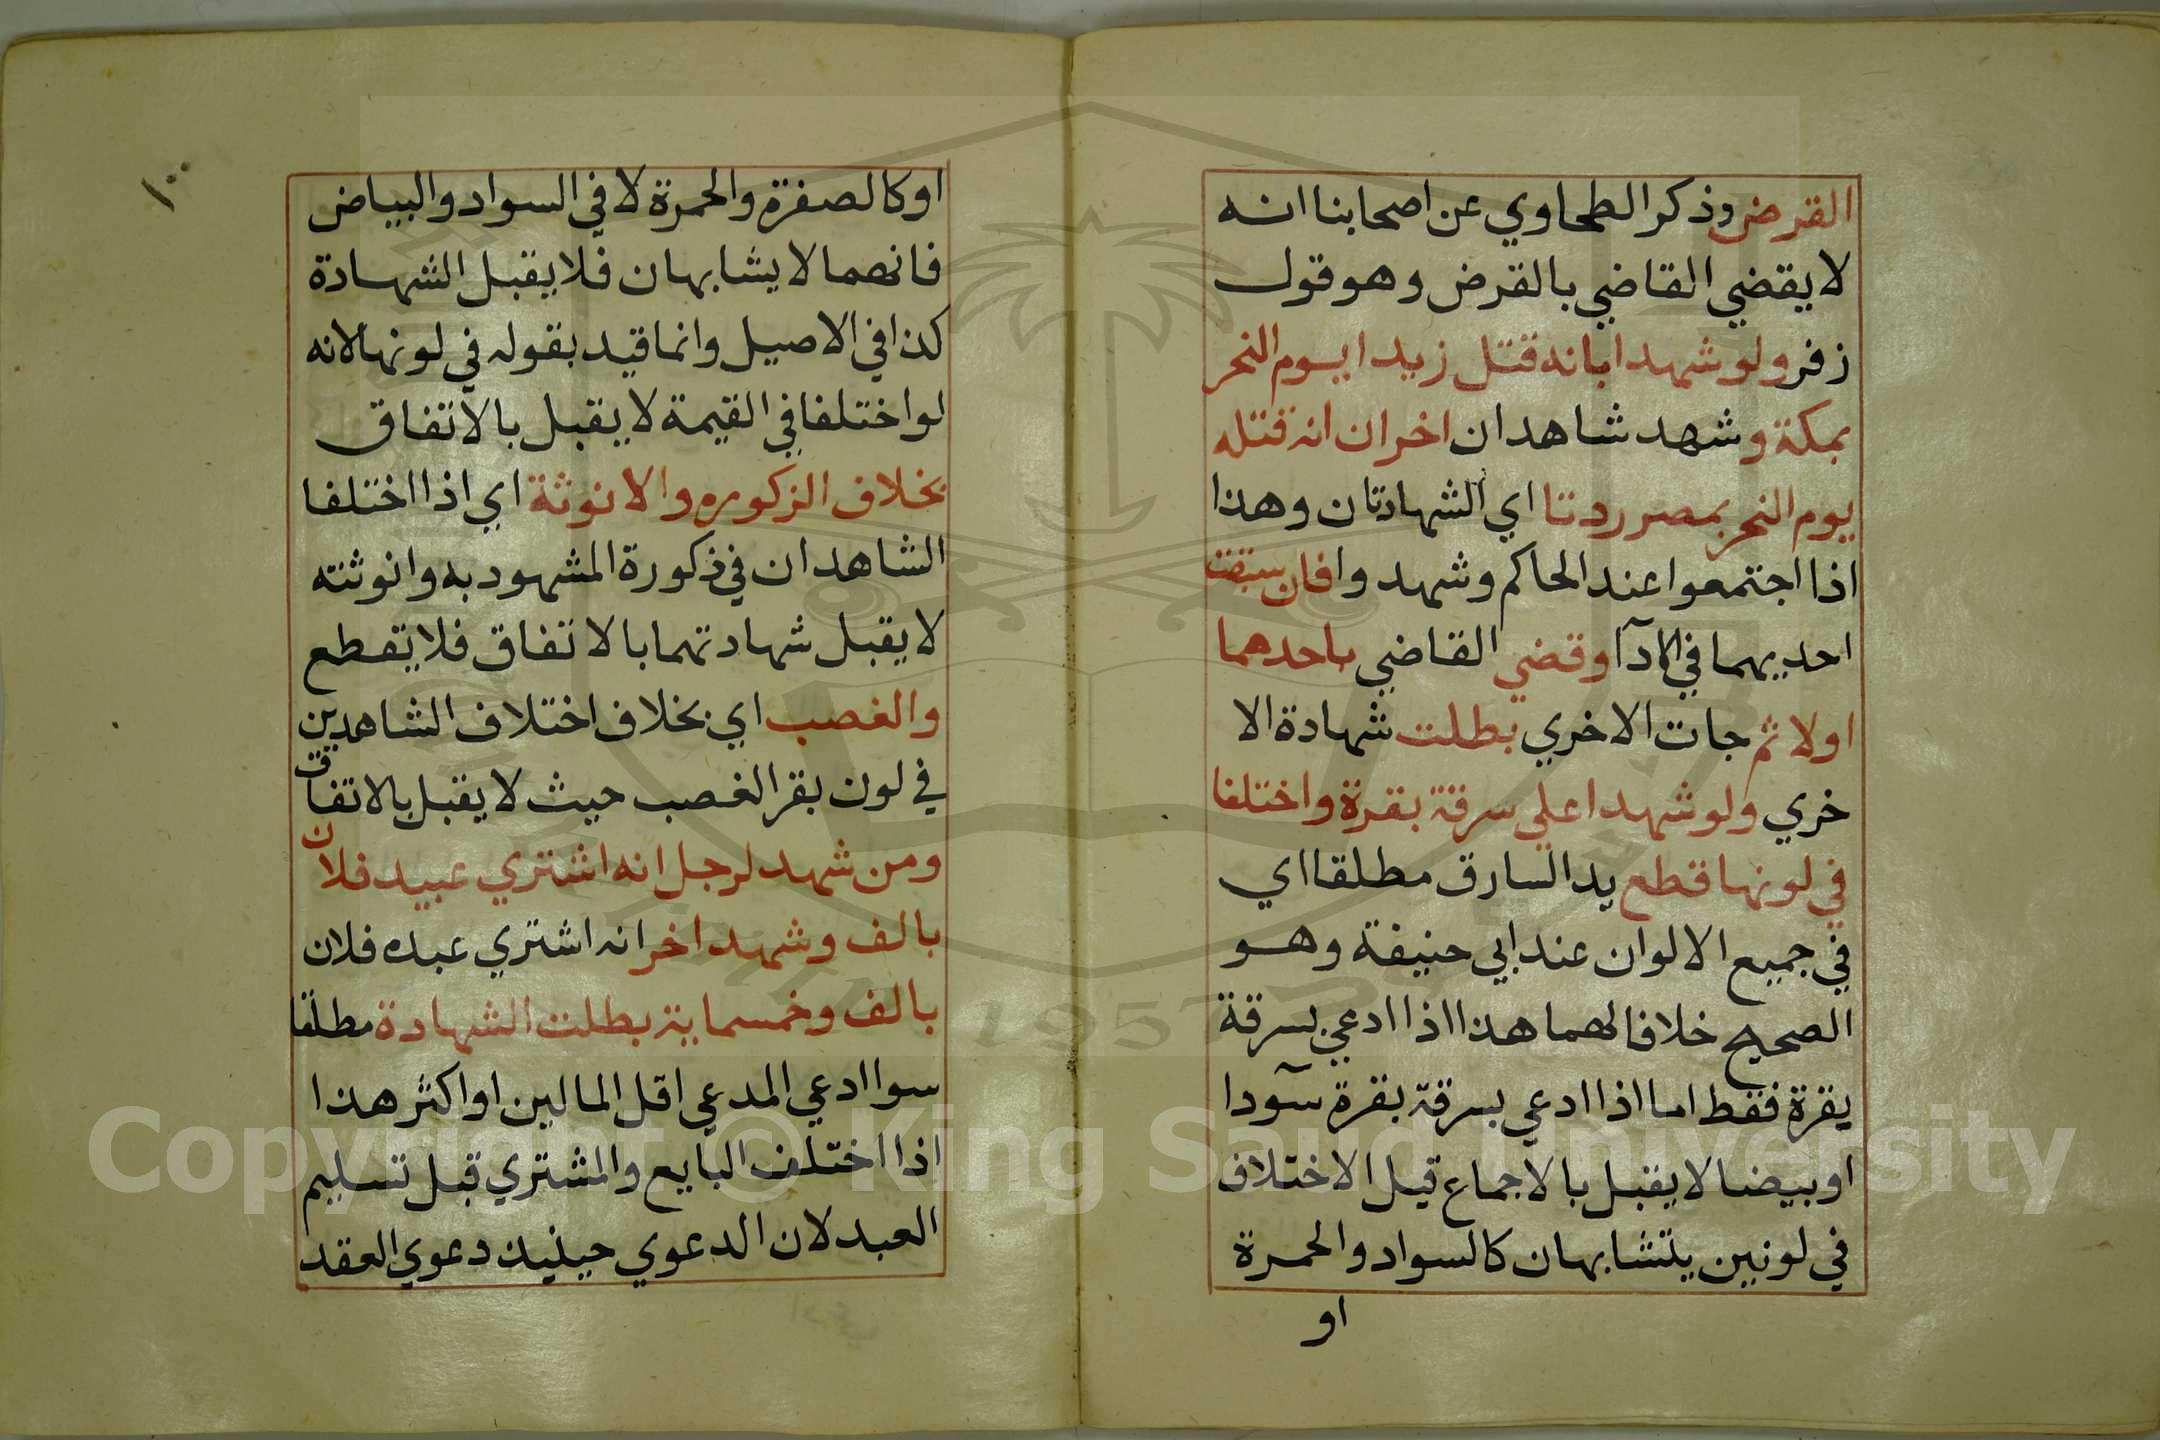 القرض وذكر الطحاوي عن اصحابنا انه
لا يقضي القاضي بالقرض وهو قول
زفر ولو شهدا بانه قتل زيدا يوم النحر
بمكة وشهد شاهدان اخران انه قتله
يوم النحر بمصر ردتا اي الشهادتان وهذا
اذا اجتمعوا عند الحاكم وشهدوا فان سبقت
احديهما في الادآ وقضي القاضي باحدهما
اولا ثم جات الاخري بطلت شهادة الا
خري ولو شهدا علي سرقة بقرة واختلفا
في لونها قطع يد السارق مطلقا اي
في جميع الالوان عند ابي حنيفة وهو
الصحيح خلافا لهما هذا اذا ادعي بسرقة
بقرة فقط اما اذا ادعي بسرقة بقرة سودا
او بيضا لا يقبل بالاجماع قيل الاختلاف
في لونين يتشابهان كالسواد والحمرة
او
١٠٠
او كالصفرة والحمرة لا في السواد والبياض
فانهما لا يشابهان فلا يقبل الشهادة
كذا في الاصيل وانما قيد بقوله في لونها لانه
لو اختلفا في القيمة لا يقبل بالاتفاق
بخلاف الزكوره والانوثة اي اذا اختلفا
الشاهدان في ذكورة المشهود به وانوثته
لا يقبل شهادتهما بالاتفاق فلا يقطع
والغصب اي بخلاف اختلاف الشاهدين
في لون بقر الغصب حيث لا يقبل بالاتفاق
ومن شهد لرجل انه اشتري عبيد فلان
بالف وشهد اخر انه اشتري عبده فلان
بالف وخمسماية بطلت الشهادة مطلقا
سوا ادعي المدعي اقل المالين او اكثر هذا
اذا اختلف البايع والمشتري قبل تسليم
العبد لان الدعوي حينيذ دعوي العقد
Copyright © King Saud University
1957